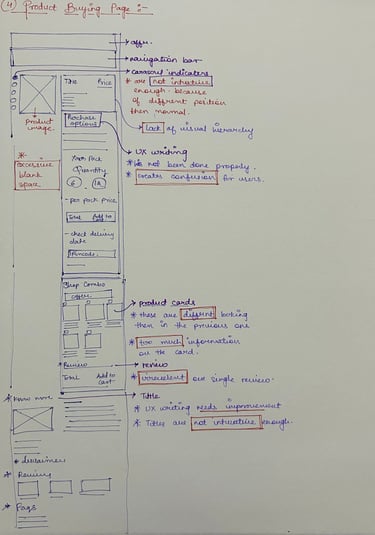 (4) Product Buying Page :-
offer.
navigation bar
carousel indicaters
* are not intuitive
enough because
of different position
then normal.
Title Price
* Product
image.
lack of visual hierarchy
Purchase
options
UX writing
* has not been done properly.
* creates confusion for users.
*
excessive
blank
space
Pack
Quantity
6 12
- per pack price
Total Add to
- check delivery
date
Pincode
Shop Combo
offer
product cards
* these are different looking
then in the previous one
* too much information
on the card.
* Review
review
Total Add to
cart
* irrevelent one single review.
* Know more
Title
* UX writing needs improvement
* Titles are not intuitive enough.
* disclaimer
* Review
* Faqs